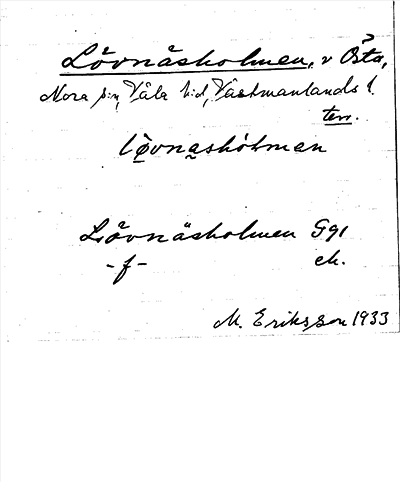 Lövnäsholmen, v Östa,
Nora sn, Våla hd, Västmanlands l.
terr.
lø̀vnashólman
Lövnäsholmen Gg1
-f- ek.
M. Eriksson 1933